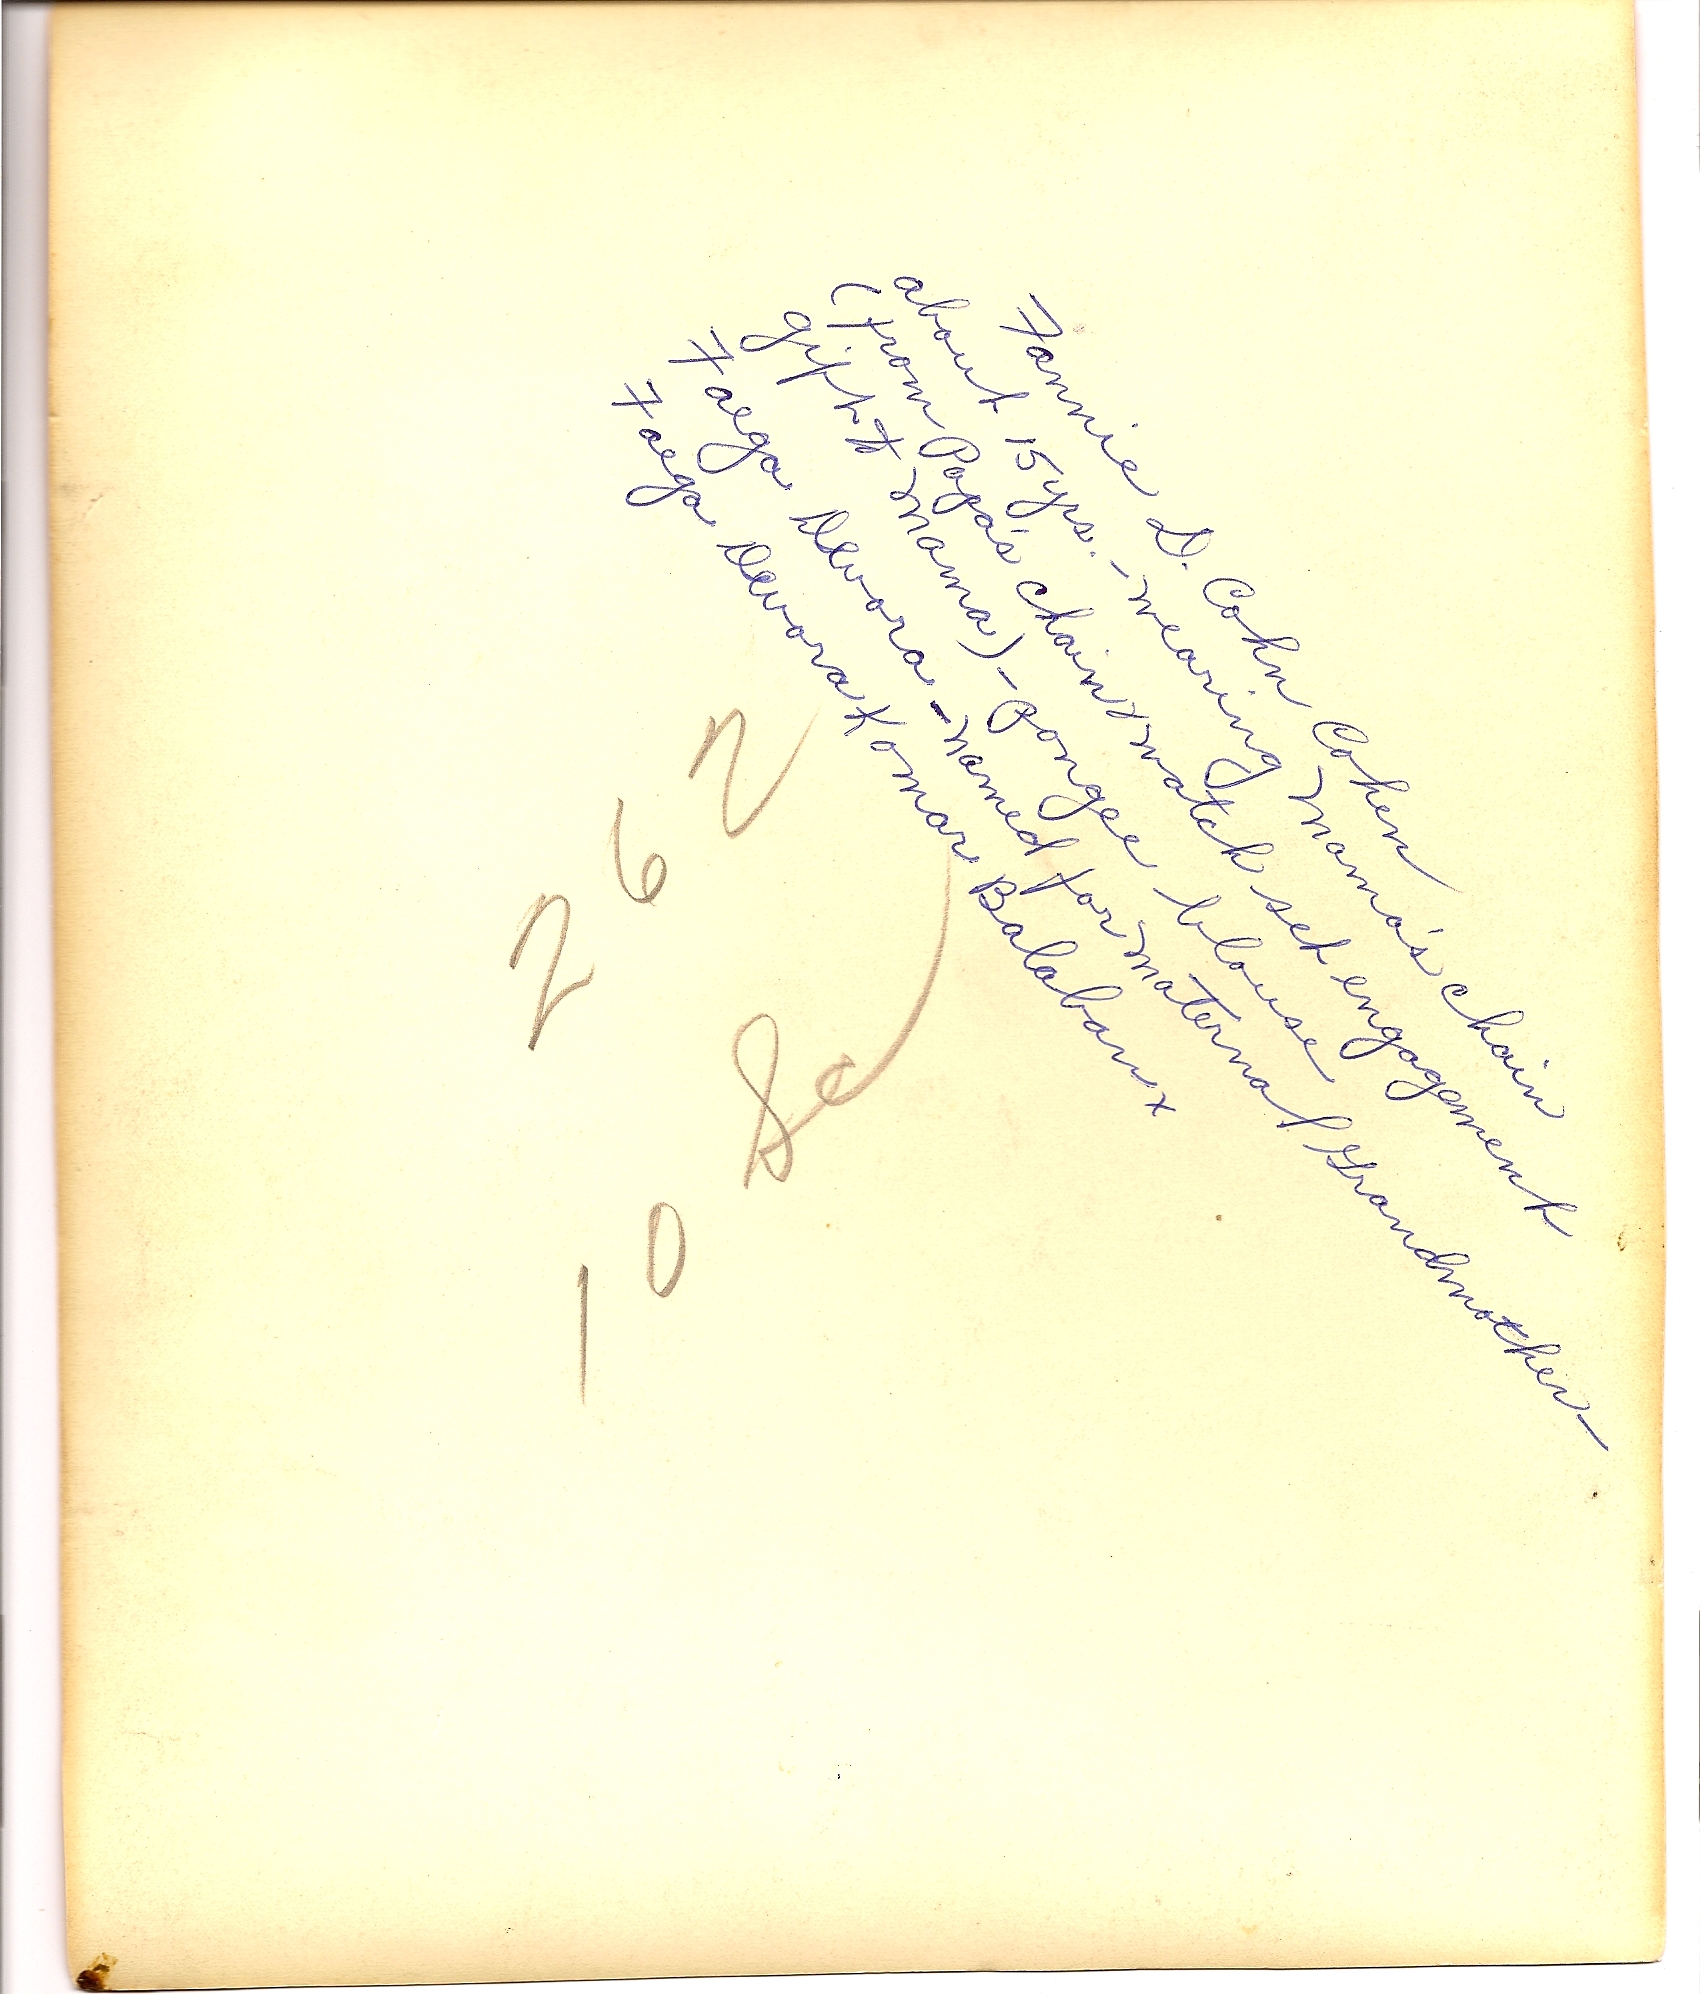 Fannie D. Cohn Cohen
about 15 yrs. - wearing Mama's chain
(from Papa's chain & watch set engagement
gift to Mama) - Pongee blouse
Faega Devora - named for maternal Grandmother -
Faega Devora Komar Balaban x
262
10